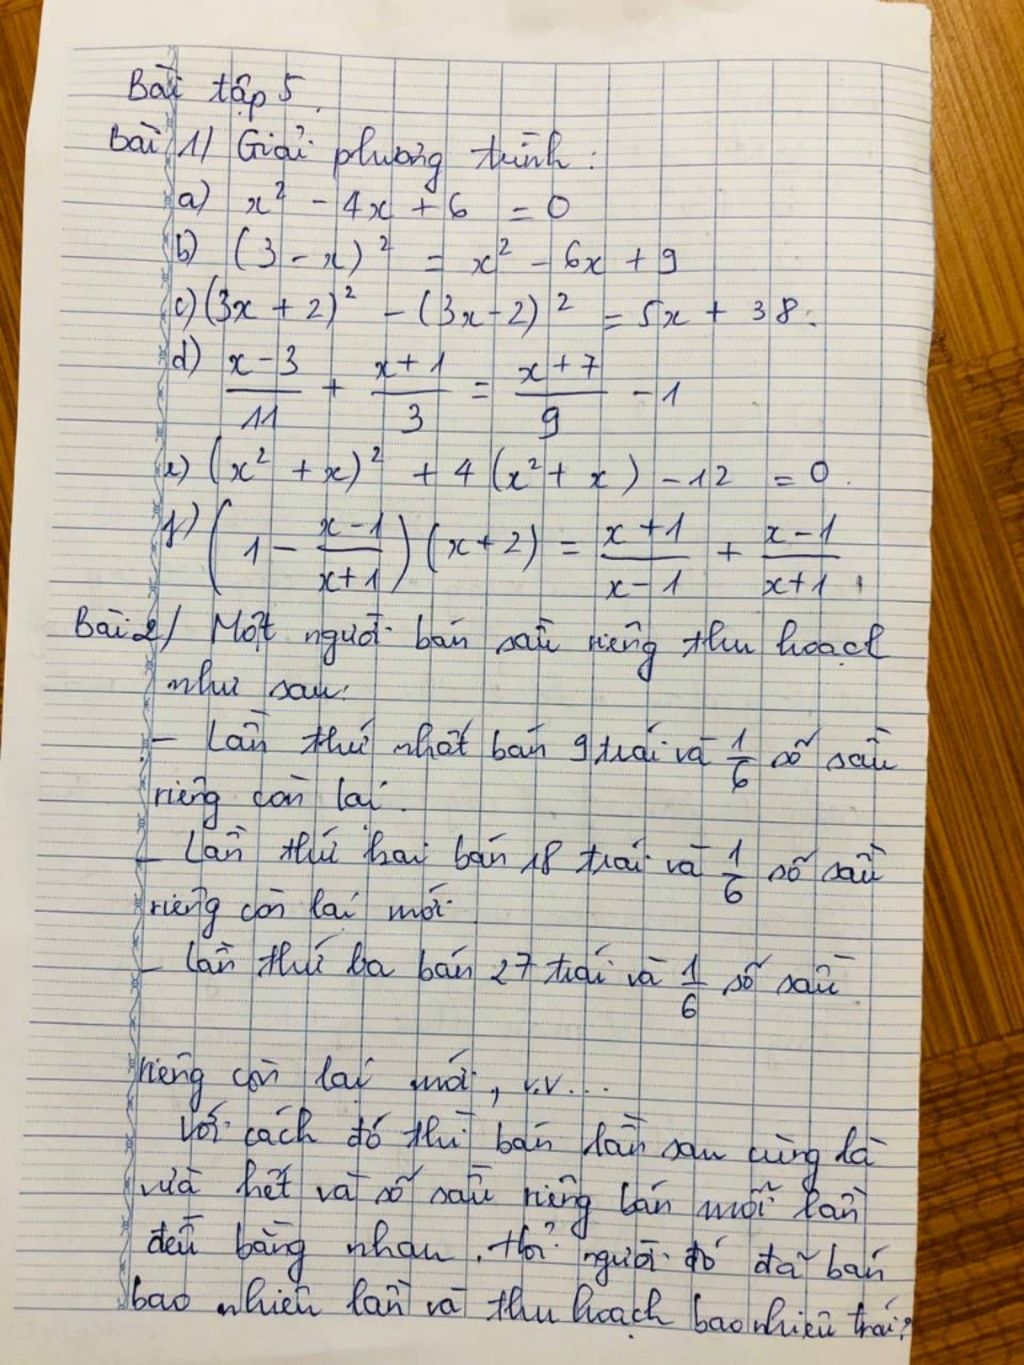 Bài tập 5.
Bài 1/ Giải phương trình:
a) x² - 4x + 6 = 0
b) (3 - x)² = x² - 6x + 9
c) (3x + 2)² - (3x - 2)² = 5x + 38.
d) (x - 3)/11 + (x + 1)/3 = (x + 7)/9 - 1
e) (x² + x)² + 4(x² + x) - 12 = 0.
f) (1 - (x - 1)/(x + 1))(x + 2) = (x + 1)/(x - 1) + (x - 1)/(x + 1).
Bài 2/ Một người bán sầu riêng thu hoạch
như sau:
- Lần thứ nhất bán 9 trái và 1/6 số sầu
riêng còn lại.
- Lần thứ hai bán 18 trái và 1/6 số sầu
riêng còn lại mới
- Lần thứ ba bán 27 trái và 1/6 số sầu
riêng còn lại mới, v.v...
Với cách đó thì bán lần sau cùng là
vừa hết và số sầu riêng bán mỗi lần
đều bằng nhau. Hỏi người đó đã bán
bao nhiêu lần và thu hoạch bao nhiêu trái?